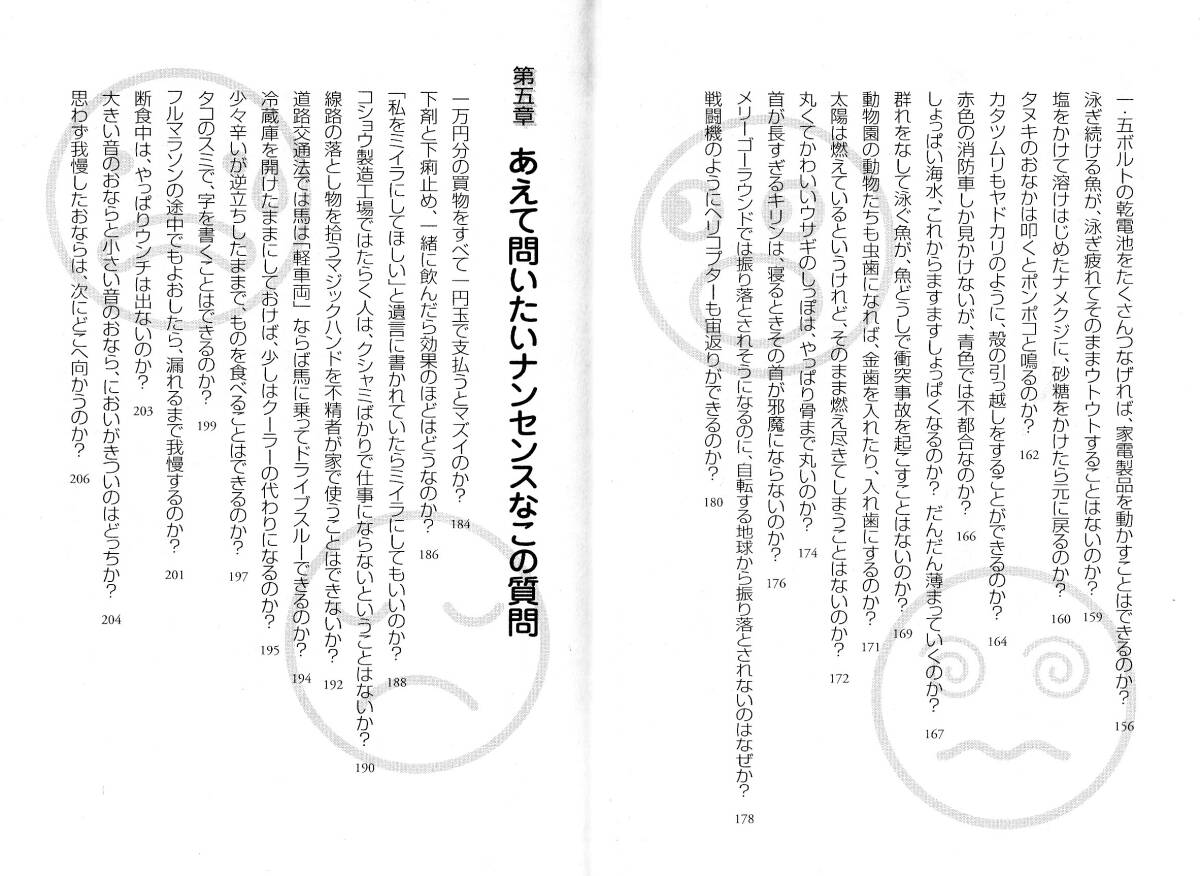 一・五ボルトの乾電池をたくさんつなげれば、家電製品を動かすことはできるのか? 156
泳ぎ続ける魚が、泳ぎ疲れてそのままウトウトすることはないのか? 159
塩をかけて溶けはじめたナメクジに、砂糖をかけたら元に戻るのか? 160
タヌキのおなかは叩くとポンポコと鳴るのか? 162
カタツムリもヤドカリのように、殻の引っ越しをすることができるのか? 164
赤色の消防車しか見かけないが、青色では不都合なのか? 166
しょっぱい海水、これからますますしょっぱくなるのか? だんだん薄まっていくのか? 167
群れをなして泳ぐ魚が、魚どうしで衝突事故を起こすことはないのか? 169
動物園の動物たちも虫歯になれば、金歯を入れたり、入れ歯にするのか? 171
太陽は燃えているというけれど、そのまま燃え尽きてしまうことはないのか? 172
丸くてかわいいウサギのしっぽは、やっぱり骨まで丸いのか? 174
首が長すぎるキリンは、寝るときその首が邪魔にならないのか? 176
メリーゴーラウンドでは振り落とされそうになるのに、自転する地球から振り落とされないのはなぜか? 178
戦闘機のようにヘリコプターも宙返りができるのか? 180
第五章 あえて問いたいナンセンスなこの質問
一万円分の買物をすべて一円玉で支払うとマズイのか? 184
下剤と下痢止め、一緒に飲んだら効果のほどはどうなのか? 186
「私をミイラにしてほしい」と遺言に書かれていたらミイラにしてもいいのか? 188
コショウ製造工場ではたらく人は、クシャミばかりで仕事にならないということはないか? 190
線路の落とし物を拾うマジックハンドを不精者が家で使うことはできないか? 192
道路交通法では馬は「軽車両」ならば馬に乗ってドライブスルーできるのか? 194
冷蔵庫を開けたままにしておけば、少しはクーラーの代わりになるのか? 195
少々辛いが逆立ちしたままで、ものを食べることはできるのか? 197
タコのスミで、字を書くことはできるのか? 199
フルマラソンの途中でもよおしたら、漏れるまで我慢するのか? 201
断食中は、やっぱりウンチは出ないのか? 203
大きい音のおならと小さい音のおなら、においがきついのはどっちか? 204
思わず我慢したおならは、次にどこへ向かうのか? 206